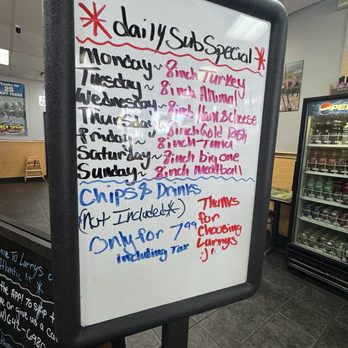 *daily Sub Special*
Monday~ 8inch Turkey
Tuesday~ 8inch Animal
Wednesday~ 8inch Ham & Cheese
Thursday~ 8inch Gold Rush
Friday~ 8inch Tuna
Saturday~ 8inch big one
Sunday~ 8inch Meatball
Chips & Drinks
(Not Included*)
Only for 7.99
including Tax
Thanks
for
choosing
Larrys
:)
PEPSI